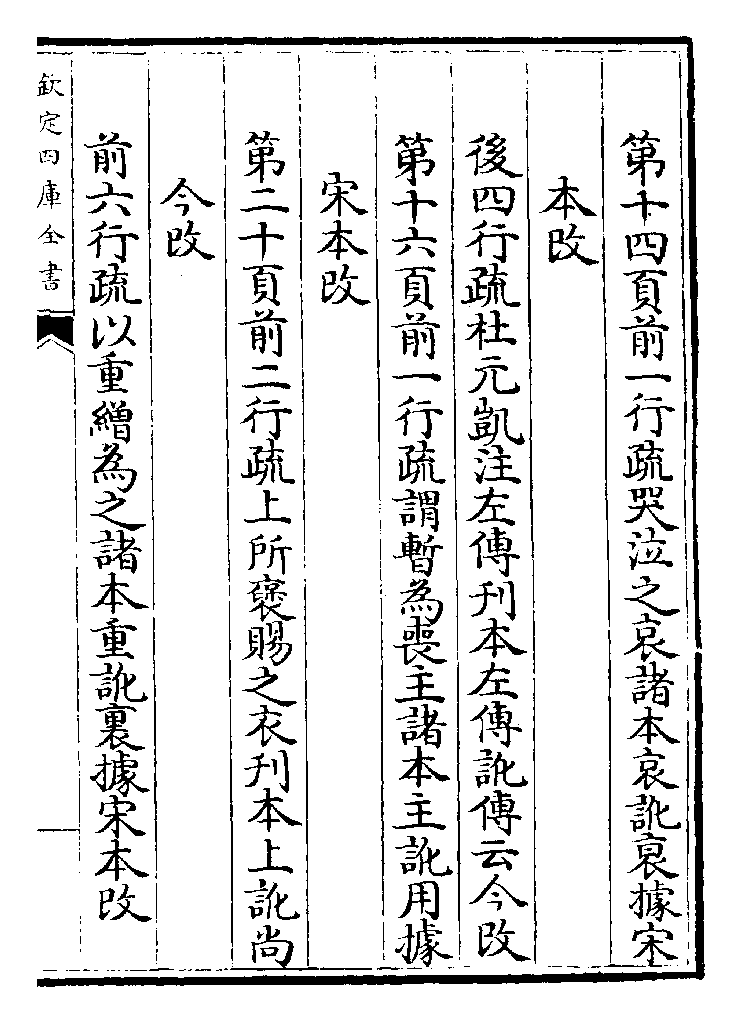 第十四頁前一行疏哭泣之哀諸本哀訛裒據宋
本改
後四行疏杜元凱注左傳刊本左傳訛傳云今改
第十六頁前一行疏謂暫為喪主諸本主訛用據
宋本改
第二十頁前二行疏上所襃賜之衣刊本上訛尚
今改
前六行疏以重繒為之諸本重訛裏據宋本改
欽定四庫全書